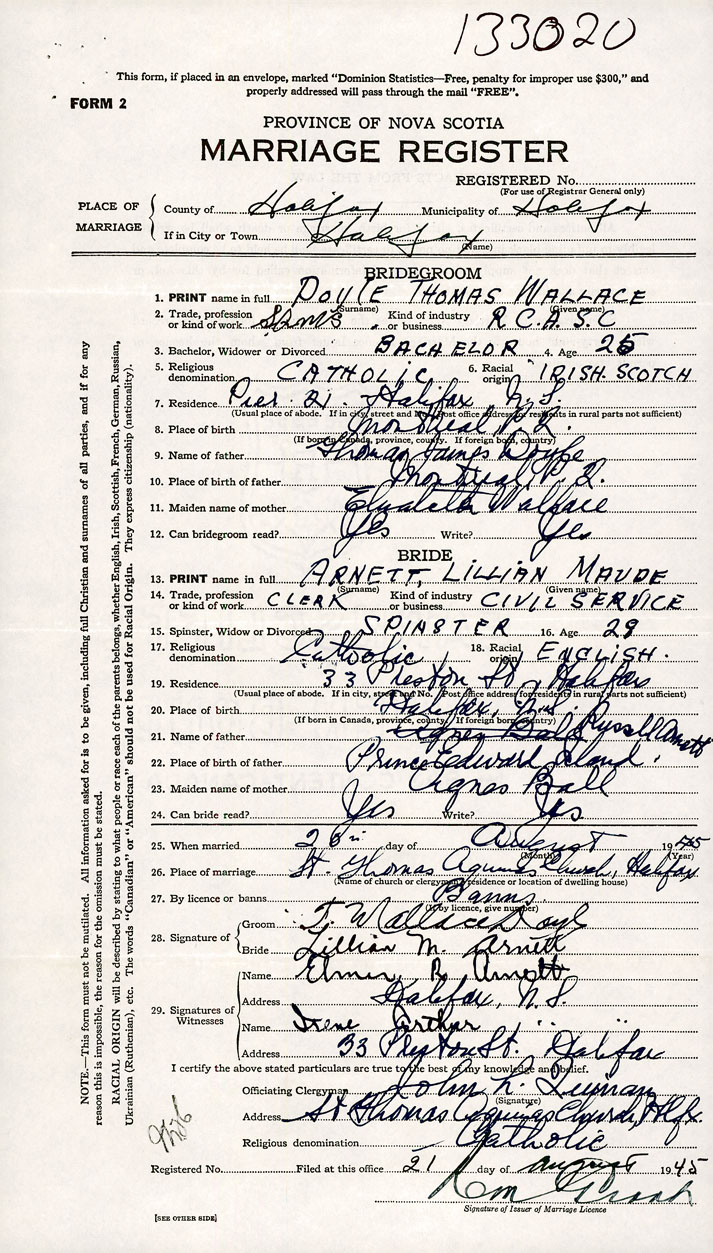 133020
This form, if placed in an envelope, marked "Dominion Statistics—Free, penalty for improper use $300," and
properly addressed will pass through the mail "FREE".
FORM 2
PROVINCE OF NOVA SCOTIA
MARRIAGE REGISTER
REGISTERED No.
(For use of Registrar General only)
PLACE OF MARRIAGE
County of Halifax Municipality of Halifax
If in City or Town Halifax
(Name)
BRIDEGROOM
1. PRINT name in full DOYLE THOMAS WALLACE
(Surname) (Given name)
2. Trade, profession or kind of work Kind of industry or business R.C.A.S.C
3. Bachelor, Widower or Divorced BACHELOR 4. Age 25
5. Religious denomination CATHOLIC 6. Racial origin IRISH. SCOTCH
7. Residence Pier 21. Halifax N.S.
(Usual place of abode. If in city, street and No. Post office address for residents in rural parts not sufficient)
8. Place of birth Montreal P.Q.
(If born in Canada, province, county. If foreign born, country)
9. Name of father Thomas James Doyle
10. Place of birth of father Montreal P.Q.
11. Maiden name of mother Elizabeth Wallace
12. Can bridegroom read? Yes Write? Yes
BRIDE
13. PRINT name in full ARNETT, LILLIAN MAUDE
(Surname) (Given name)
14. Trade, profession or kind of work CLERK Kind of industry or business CIVIL SERVICE
15. Spinster, Widow or Divorced SPINSTER 16. Age 29
17. Religious denomination Catholic 18. Racial origin ENGLISH.
19. Residence 33 Preston St, Halifax
(Usual place of abode. If in city, street and No. Post office address for residents in rural parts not sufficient)
20. Place of birth Halifax, N.S.
(If born in Canada, province, county. If foreign born, country)
21. Name of father Agnes Ball Russell Arnett
22. Place of birth of father Prince Edward Island.
23. Maiden name of mother Agnes Ball
24. Can bride read? Yes Write? Yes
25. When married 20 day of August 1945
(Month) (Year)
26. Place of marriage St. Thomas Aquinas Church, Halifax
(Name of church or clergyman's residence or location of dwelling house)
27. By licence or banns Banns
(If by licence, give number)
28. Signature of
Groom T. Wallace Doyle
Bride Lillian M. Arnett
29. Signatures of Witnesses
Name Elmer R. Arnett
Address Halifax, N.S.
Name Irene Arthur
Address 33 Preston St. Halifax
I certify the above stated particulars are true to the best of my knowledge and belief.
Officiating Clergyman John N.
(Signature)
Address St Thomas Aquinas Church, Hlfx.
Religious denomination Catholic
Registered No. Filed at this office 21 day of August 1945
Signature of Issuer of Marriage Licence
[SEE OTHER SIDE]
NOTE.—This form must not be mutilated. All information asked for is to be given, including full Christian and surnames of all parties, and if for any
reason this is impossible, the reason for the omission must be stated.
RACIAL ORIGIN will be described by stating to what people or race each of the parents belongs, whether English, Irish, Scottish, French, German, Russian,
Ukrainian (Ruthenian), etc. The words "Canadian" or "American" should not be used for Racial Origin. They express citizenship (nationality).